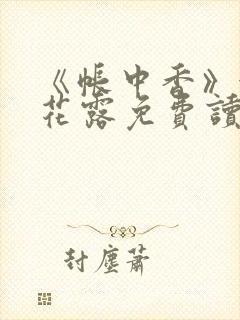 《帳中香》
花露免費讀
封塵蕭